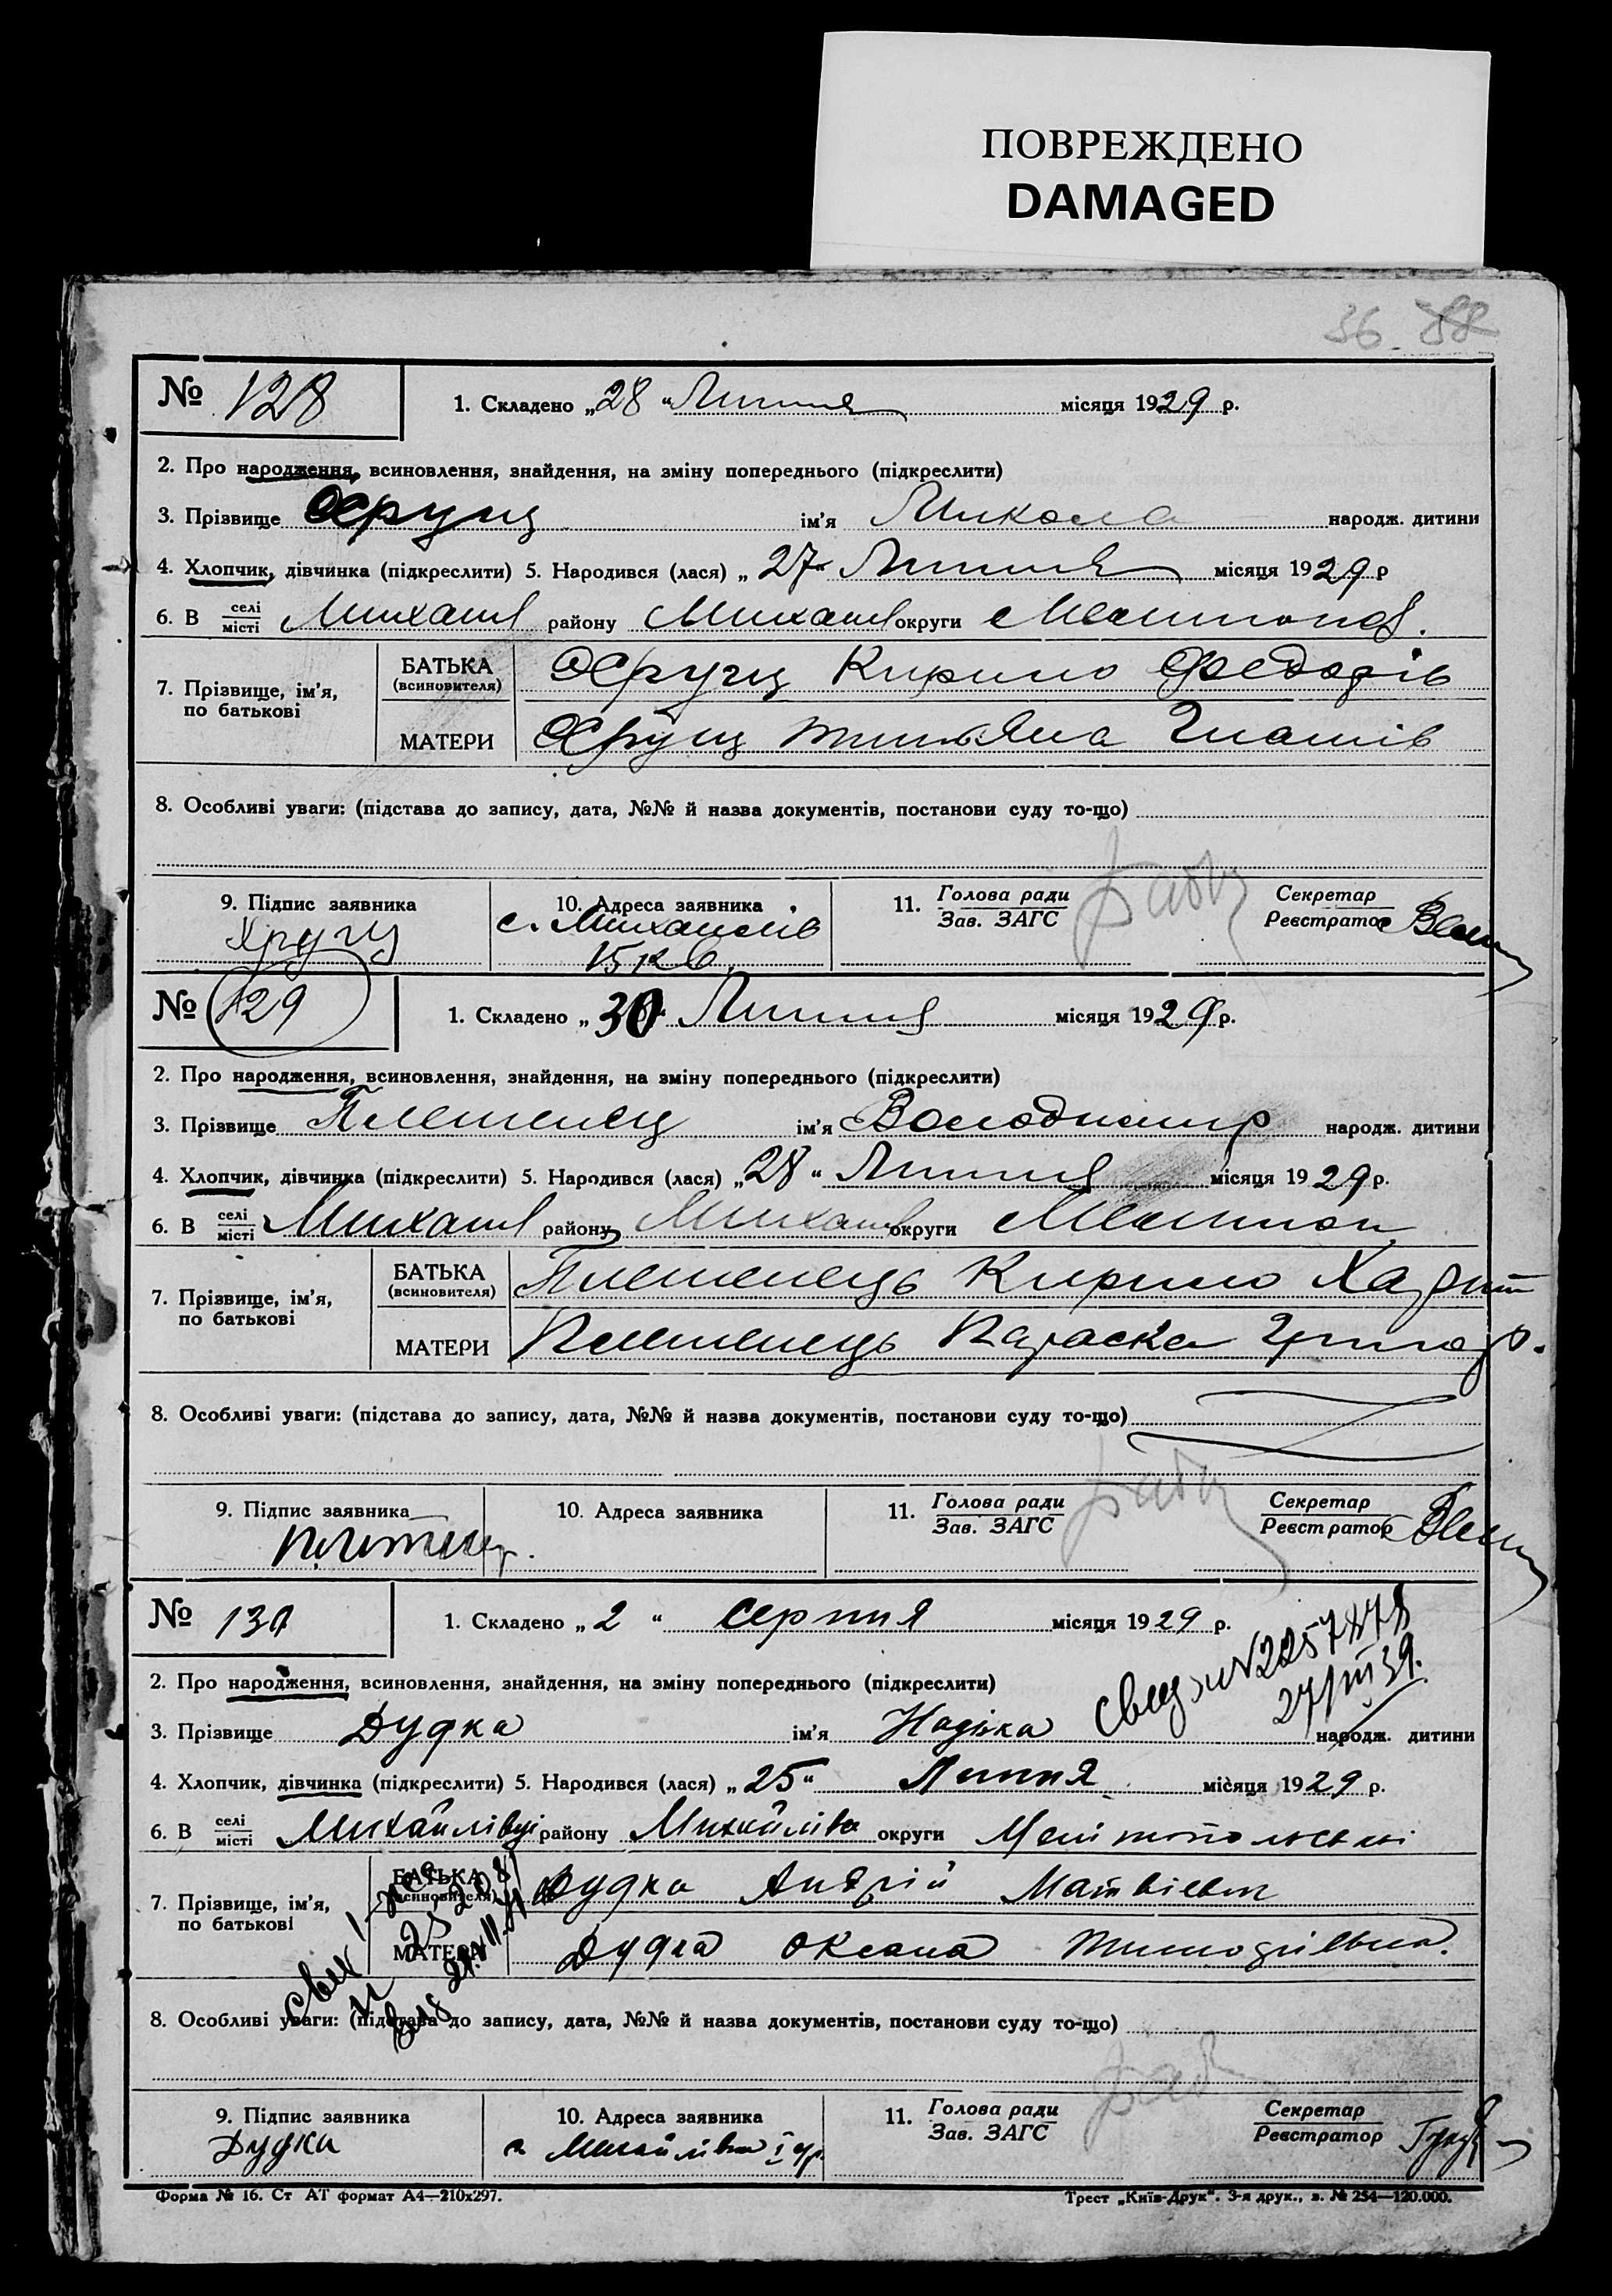 ПОВРЕЖДЕНО
DAMAGED
36 88
№ 128 1. Складено „28“ Липня місяця 1929 р.
2. Про народження, всиновлення, знайдення, на зміну попереднього (підкреслити)
3. Прізвище Хрущ ім'я Микола народж. дитини
4. Хлопчик, дівчинка (підкреслити) 5. Народився (лася) „27“ Липня місяця 1929 р
6. В селі місті Михайл району Михайл округи Мелитоп.
7. Прізвище, ім'я, по батькові
БАТЬКА (всиновителя) Хрущ Кирило Федорів
МАТЕРИ Хрущ Титяна Гнатів
8. Особливі уваги: (підстава до запису, дата, №№ й назва документів, постанови суду то-що)
9. Підпис заявника 10. Адреса заявника 11. Голова ради Зав. ЗАГС Секретар Реєстратор
Хрущ с. Михайлів
15 кв.
№ 129 1. Складено „30“ Липня місяця 1929 р.
2. Про народження, всиновлення, знайдення, на зміну попереднього (підкреслити)
3. Прізвище ім'я Володимир народж. дитини
4. Хлопчик, дівчинка (підкреслити) 5. Народився (лася) „28“ Липня місяця 1929 р.
6. В селі місті Михайл району Михайл округи Мелитоп
7. Прізвище, ім'я, по батькові
БАТЬКА (всиновителя) Кирило Харит
МАТЕРИ Параска Григор.
8. Особливі уваги: (підстава до запису, дата, №№ й назва документів, постанови суду то-що)
9. Підпис заявника 10. Адреса заявника 11. Голова ради Зав. ЗАГС Секретар Реєстратор
№ 130 1. Складено „2“ серпня місяця 1929 р.
2. Про народження, всиновлення, знайдення, на зміну попереднього (підкреслити)
3. Прізвище Дудка ім'я Надька народж. дитини
4. Хлопчик, дівчинка (підкреслити) 5. Народився (лася) „25“ Липня місяця 1929 р.
6. В селі місті Михайлівці району Михайлівка округи Мелітопольські
7. Прізвище, ім'я, по батькові
БАТЬКА (всиновителя) Дудка Андрій Матвієвич
МАТЕРИ Дудка Оксана
8. Особливі уваги: (підстава до запису, дата, №№ й назва документів, постанови суду то-що)
9. Підпис заявника 10. Адреса заявника 11. Голова ради Зав. ЗАГС Секретар Реєстратор
Дудка с. Михайлівка
Форма № 16. Ст АТ формат А4—210х297. Трест „Київ-Друк“. 3-я друк., з. № 254—120.000.